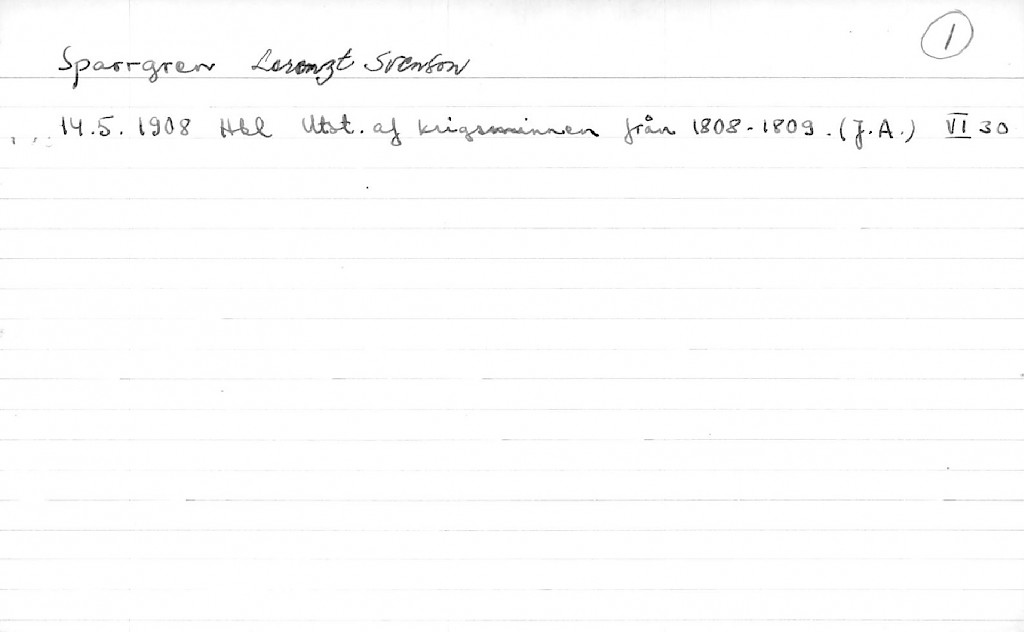 1
Sparrgren Lorenzt Svenson
14.5. 1908 Hbl Utst. af krigsminnen från 1808-1809. (J.A.) VI 30